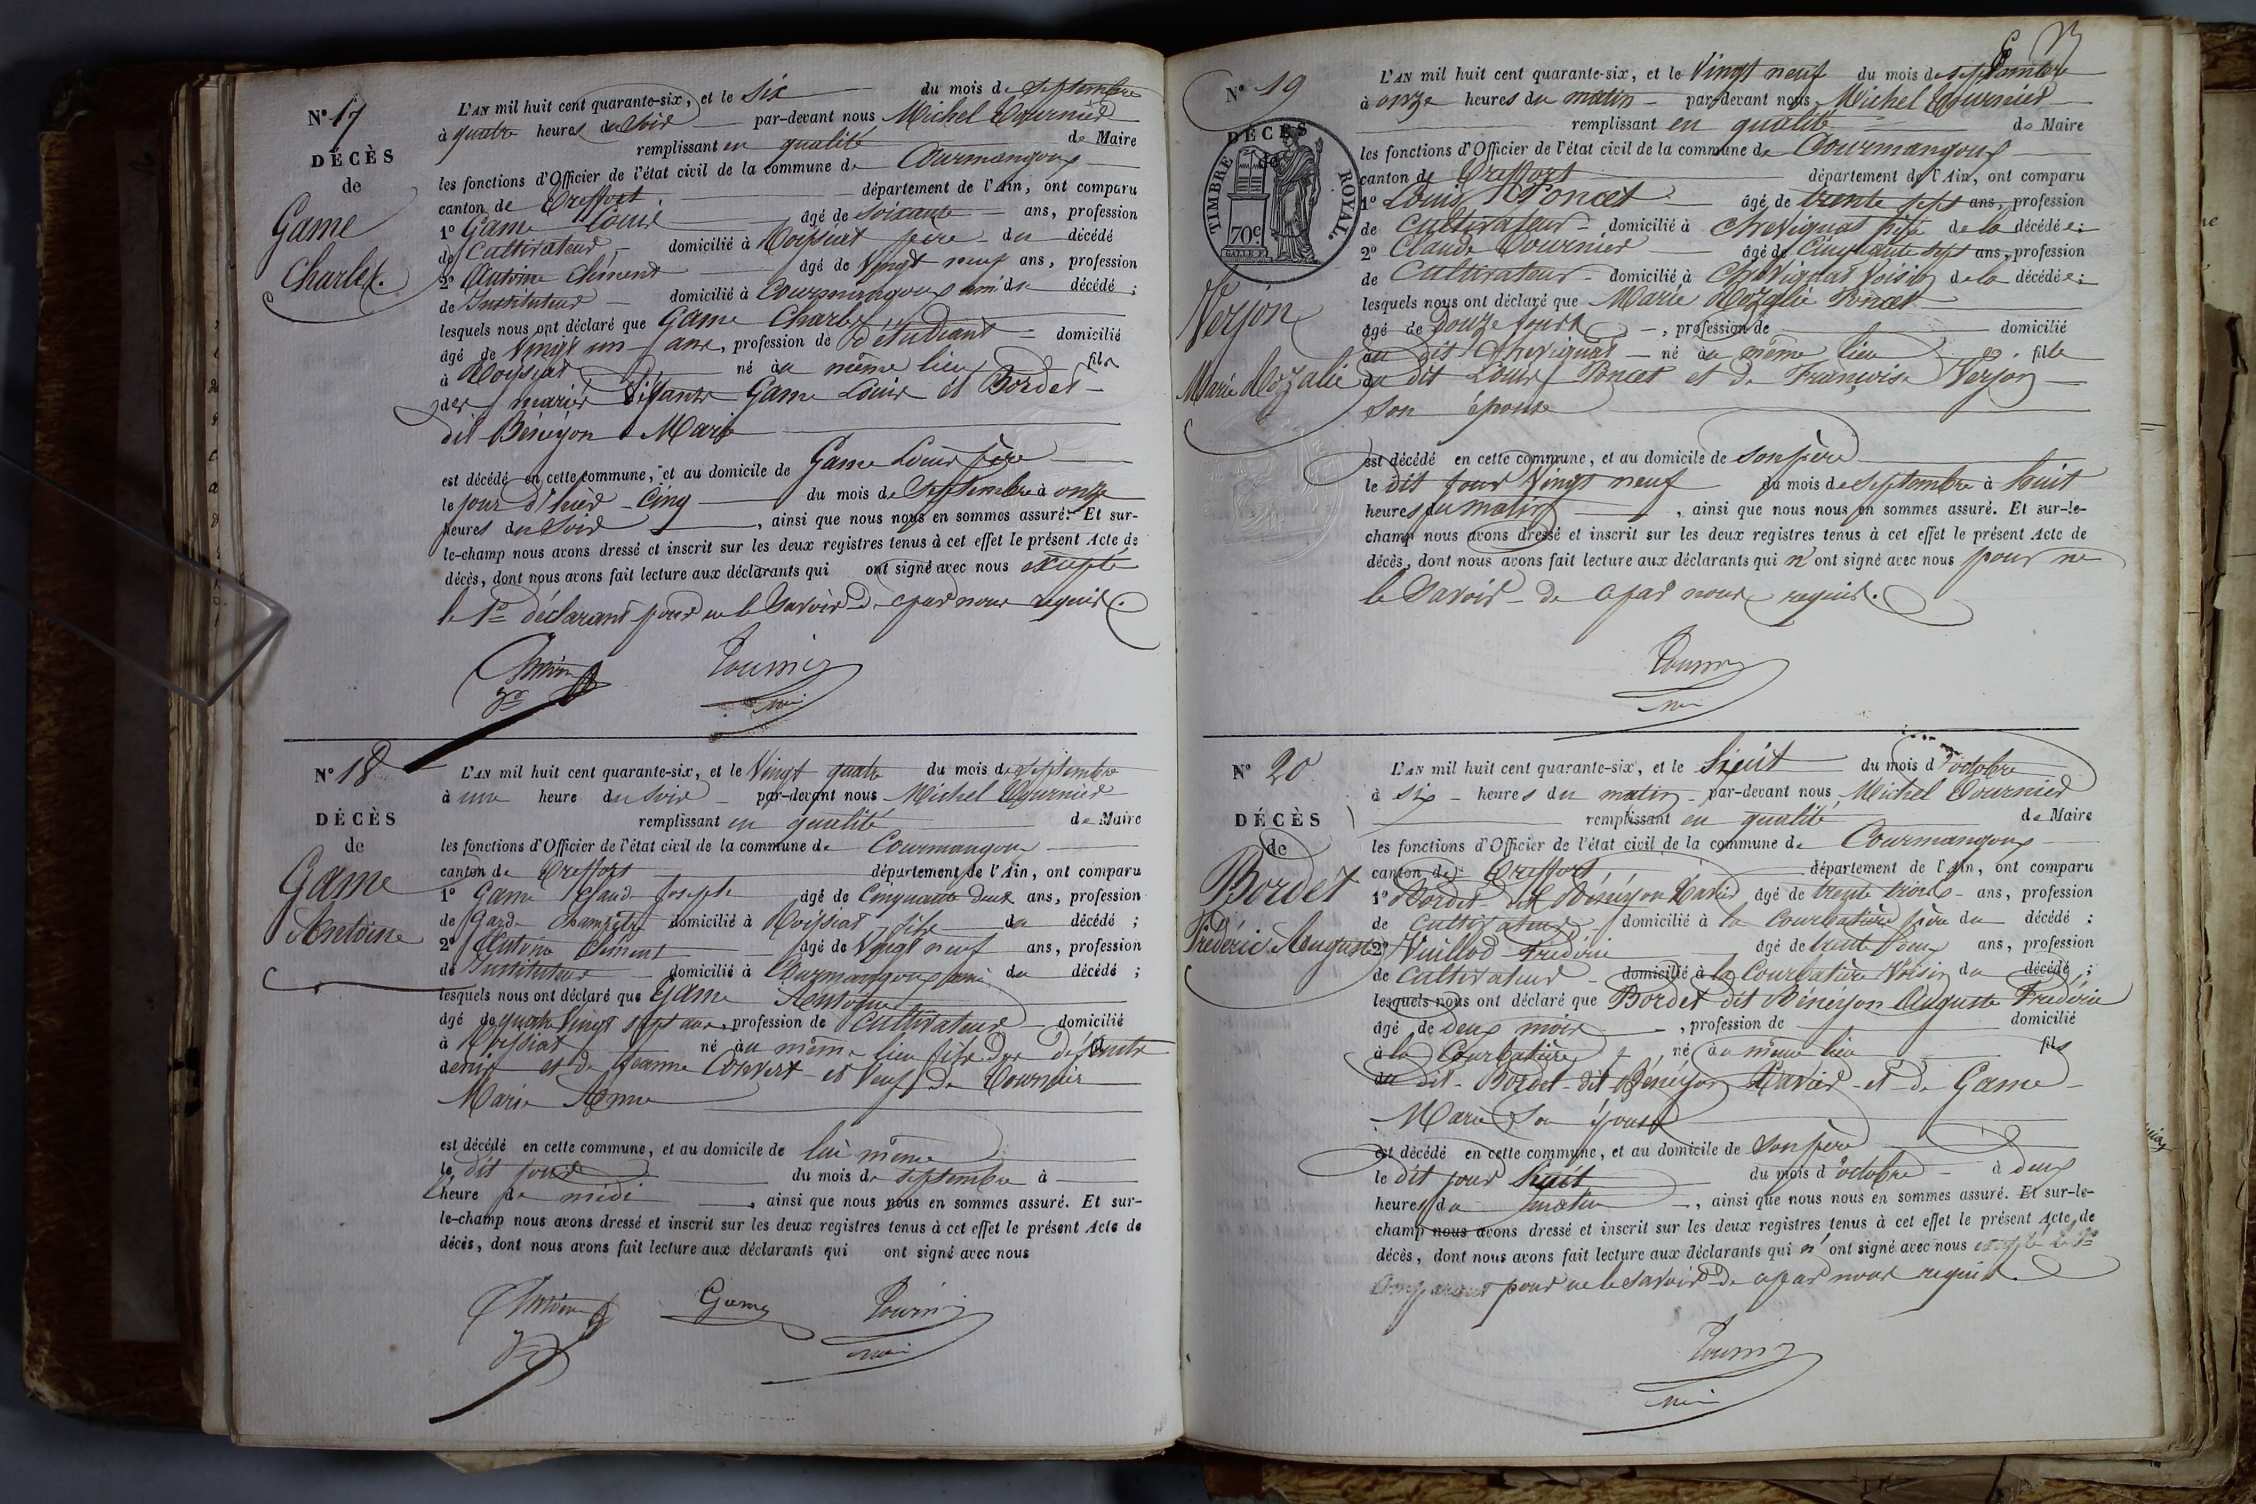 N° 17
DÉCÈS
de
Game
Charles.
L'AN mil huit cent quarante-six, et le six du mois de septembre
à quatre heures du soir par-devant nous Michel Tournier
remplissant en qualité de Maire
les fonctions d'Officier de l'état civil de la commune de Courmangoux
canton de Treffort département de l'Ain, ont comparu
1° Game Louis âgé de soixante ans, profession
de Cultivateur domicilié à Roissiat père du décédé
2° Antoine Clément âgé de vingt neuf ans, profession
de Instituteur domicilié à Courmangoux ami du décédé ;
lesquels nous ont déclaré que Game Charles
âgé de vingt un ans, profession de d'étudiant domicilié
à Roissiat né au même lieu fils
des mariés vivants Game Louis et Bordet
dit Bénéyon Marie
est décédé en cette commune, et au domicile de Game Louis père
le jour d'hier cinq du mois de septembre à onze
heures du soir, ainsi que nous nous en sommes assuré. Et sur-
le-champ nous avons dressé et inscrit sur les deux registres tenus à cet effet le présent Acte de
décès, dont nous avons fait lecture aux déclarants qui ont signé avec nous excepté
le 1er déclarant pour ne le savoir de ce par nous requis.
Tournier
N° 18
DÉCÈS
de
Game
Antoine
L'AN mil huit cent quarante-six, et le vingt quatre du mois de septembre
à une heure du soir par-devant nous Michel Tournier
remplissant en qualité de Maire
les fonctions d'Officier de l'état civil de la commune de Courmangoux
canton de Treffort département de l'Ain, ont comparu
1° Game Claude Joseph âgé de cinquante deux ans, profession
de Garde Champêtre domicilié à Roissiat fils du décédé ;
2° Antoine Clément âgé de vingt neuf ans, profession
de Instituteur domicilié à Courmangoux ami du décédé ;
lesquels nous ont déclaré que Game Antoine
âgé de quatre vingt sept ans, profession de Cultivateur domicilié
à Roissiat né au même lieu fils des défunts
denis et de Jeanne Convert et veuf de Tournier
Marie Anne
est décédé en cette commune, et au domicile de lui même
le dit jour du mois de septembre à
l'heure de midi, ainsi que nous nous en sommes assuré. Et sur-
le-champ nous avons dressé et inscrit sur les deux registres tenus à cet effet le présent Acte de
décès, dont nous avons fait lecture aux déclarants qui ont signé avec nous
Game Tournier
N° 19
TIMBRE ROYAL.
70c
DÉCÈS
Verjon
Marie Rozalie
L'AN mil huit cent quarante-six, et le vingt neuf du mois de septembre
à onze heures du matin par-devant nous Michel Tournier
remplissant en qualité de Maire
les fonctions d'Officier de l'état civil de la commune de Courmangoux
canton de Treffort département de l'Ain, ont comparu
1° Louis Poncet âgé de trente sept ans, profession
de Cultivateur domicilié à Chevignat père de la décédée ;
2° Claude Tournier âgé de cinquante sept ans, profession
de Cultivateur domicilié à Chevignat voisin de la décédée ;
lesquels nous ont déclaré que Marie Rozalie Poncet
âgé de douze jours, profession de domicilié
au dit Chevignat né au même lieu fille
du dit Louis Poncet et de Françoise Verjon
son épouse
est décédé en cette commune, et au domicile de son père
le dit jour vingt neuf du mois de septembre à huit
heures du matin, ainsi que nous nous en sommes assuré. Et sur-le-
champ nous avons dressé et inscrit sur les deux registres tenus à cet effet le présent Acte de
décès, dont nous avons fait lecture aux déclarants qui n'ont signé avec nous pour ne
le savoir de ce par nous requis.
Tournier
N° 20
DÉCÈS
de
Bordet
Frédéric Auguste
L'AN mil huit cent quarante-six, et le huit du mois d'octobre
à six heures du matin par-devant nous Michel Tournier
remplissant en qualité de Maire
les fonctions d'Officier de l'état civil de la commune de Courmangoux
canton de Treffort département de l'Ain, ont comparu
1° Bordet dit Bénéyon Xavier âgé de trente trois ans, profession
de cultivateur domicilié à la Courbatière père du décédé ;
2° Vuillod Frédéric âgé de ans, profession
de cultivateur domicilié à la Courbatière voisin du décédé ;
lesquels nous ont déclaré que Bordet dit Bénéyon Auguste Frédéric
âgé de deux mois, profession de domicilié
à la Courbatière né au même lieu fils
du dit Bordet dit Bénéyon Xavier et de Game
Marie son épouse
est décédé en cette commune, et au domicile de son père
le dit jour huit du mois d'octobre à deux
heures du matin, ainsi que nous nous en sommes assuré. Et sur-le-
champ nous avons dressé et inscrit sur les deux registres tenus à cet effet le présent Acte de
décès, dont nous avons fait lecture aux déclarants qui n'ont signé avec nous
pour ne le savoir de ce par nous requis.
Tournier